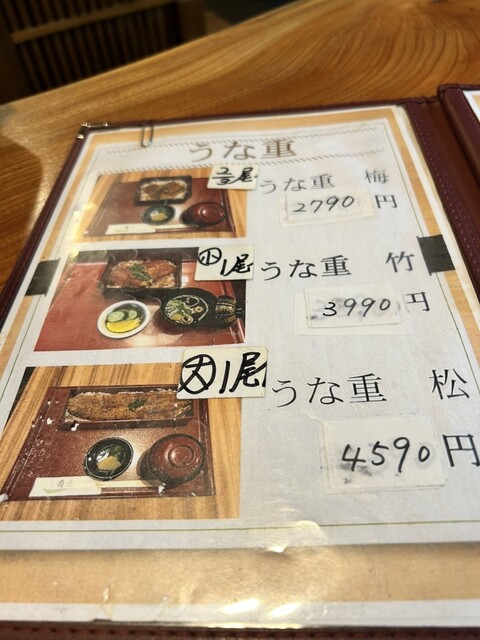 うな重
2/3尾
うな重 梅
2790円
小 1尾
うな重 竹
3990円
大 1尾
うな重 松
4590円